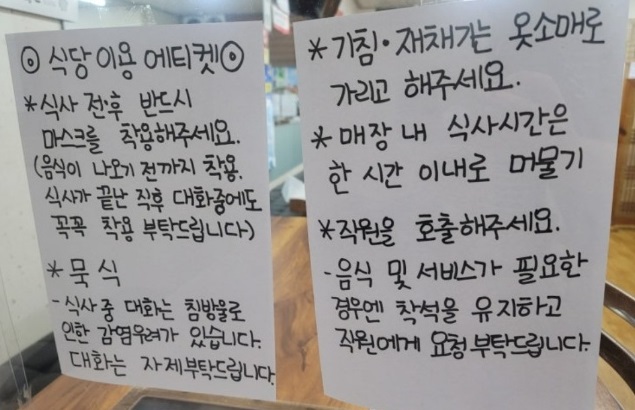 ◎ 식당 이용 에티켓 ◎
* 식사 전·후 반드시
마스크를 착용해주세요.
(음식이 나오기 전까지 착용.
식사가 끝난 직후 대화중에도
꼭꼭 착용 부탁드립니다)
* 묵 식
- 식사 중 대화는 침방울로
인한 감염우려가 있습니다.
대화는 자제부탁드립니다.
* 기침·재채기는 옷소매로
가리고 해주세요.
* 매장 내 식사시간은
한 시간 이내로 머물기
* 직원을 호출해주세요.
- 음식 및 서비스가 필요한
경우엔 착석을 유지하고
직원에게 요청부탁드립니다.